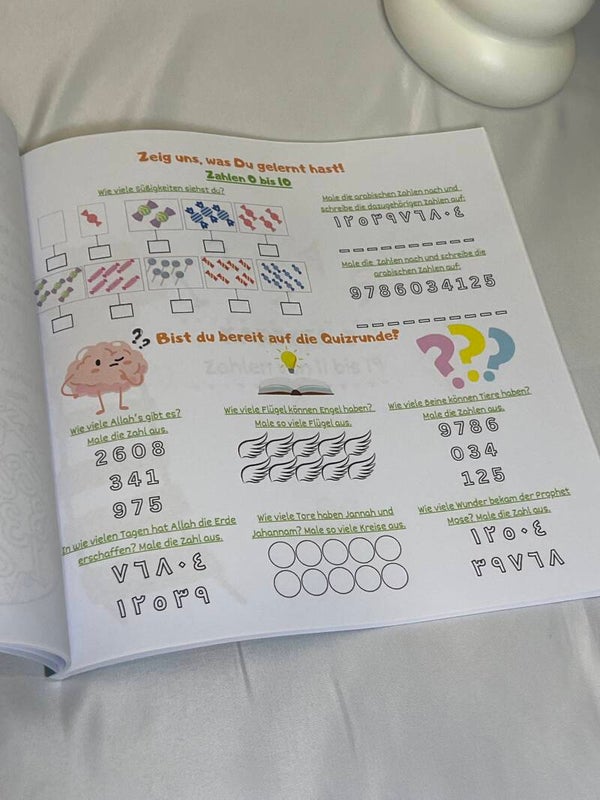 Zeig uns, was Du gelernt hast!
Zahlen 0 bis 10
Wie viele Süßigkeiten siehst du?
Male die arabischen Zahlen nach und
schreibe die dazugehörigen Zahlen auf:
١٢٥٣٩٧٦٨٠٤
Male die Zahlen nach und schreibe die
arabischen Zahlen auf:
9786034125
Bist du bereit auf die Quizrunde?
Zahlen von 11 bis 19
Wie viele Allah's gibt es?
Male die Zahl aus.
2608
341
975
Wie viele Flügel können Engel haben?
Male so viele Flügel aus.
Wie viele Beine können Tiere haben?
Male die Zahlen aus.
9786
034
125
In wie vielen Tagen hat Allah die Erde
erschaffen? Male die Zahl aus.
٧٦٨٠٤
١٢٥٣٩
Wie viele Tore haben Jannah und
Jahannam? Male so viele Kreise aus.
Wie viele Wunder bekam der Prophet
Mose? Male die Zahl aus.
١٢٥٠٤
٣٩٧٦٨